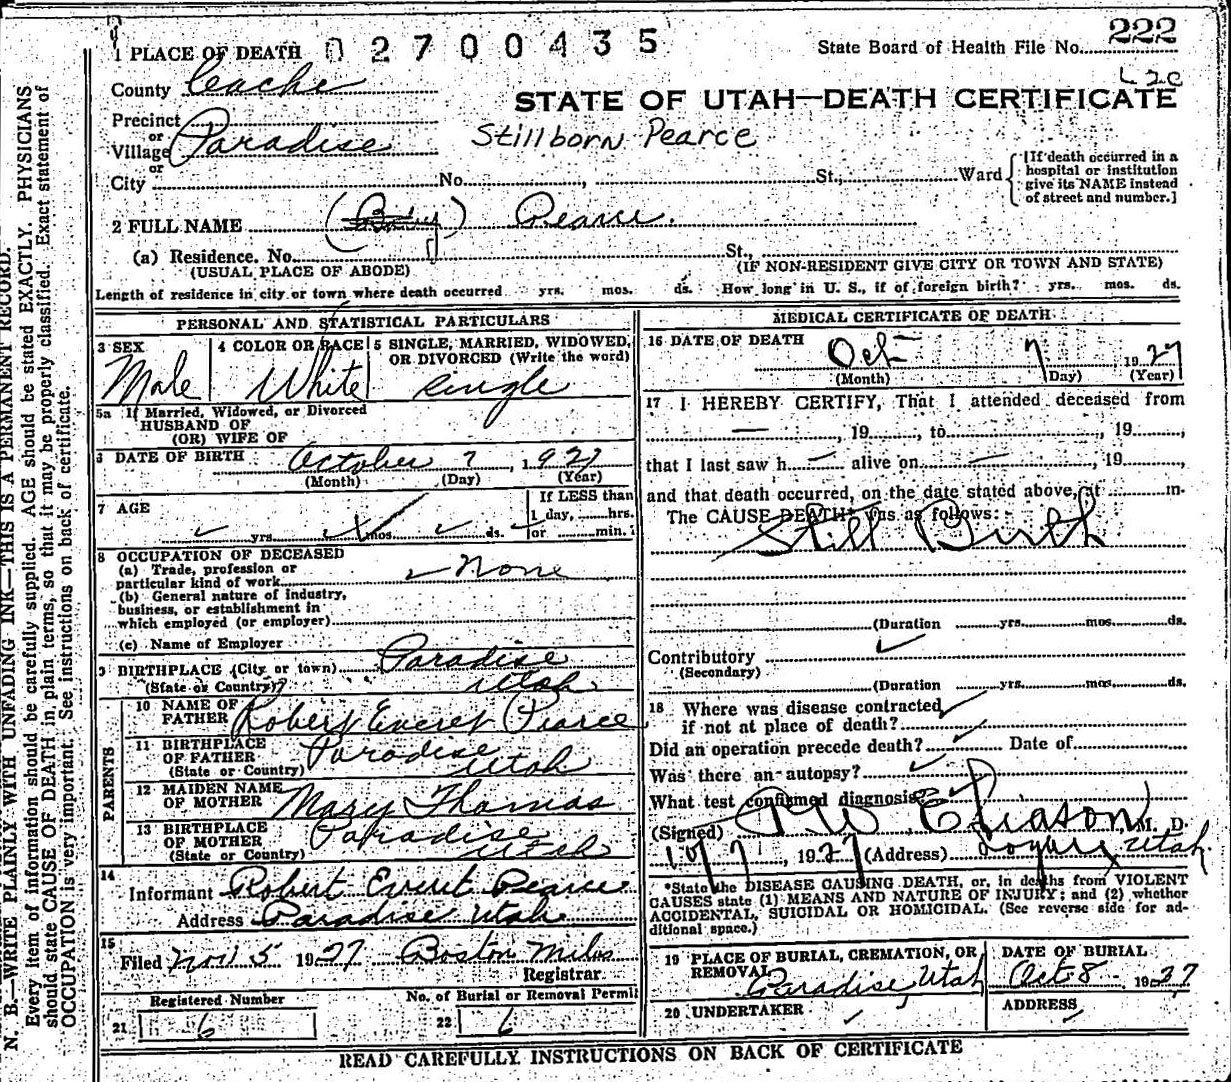 1 PLACE OF DEATH 02700435 State Board of Health File No. 222
County Cache L 20
STATE OF UTAH—DEATH CERTIFICATE
Precinct
or
Village Paradise Stillborn Pearce
or
City No. St., Ward [If death occurred in a hospital or institution give its NAME instead of street and number.]
2 FULL NAME (Baby) Pearce.
(a) Residence. No. St.,
(USUAL PLACE OF ABODE) (IF NON-RESIDENT GIVE CITY OR TOWN AND STATE)
Length of residence in city or town where death occurred yrs. mos. ds. How long in U. S., if of foreign birth? yrs. mos. ds.
PERSONAL AND STATISTICAL PARTICULARS
3 SEX 4 COLOR OR RACE 5 SINGLE, MARRIED, WIDOWED, OR DIVORCED (Write the word)
Male White single
5a If Married, Widowed, or Divorced
HUSBAND OF
(OR) WIFE OF
6 DATE OF BIRTH October 7, 1927
(Month) (Day) (Year)
7 AGE If LESS than
1 day, hrs.
yrs. mos. ds. or min.
8 OCCUPATION OF DECEASED
(a) Trade, profession or
particular kind of work None
(b) General nature of industry,
business, or establishment in
which employed (or employer)
(c) Name of Employer
9 BIRTHPLACE (City or town) Paradise
(State or Country) Utah
PARENTS
10 NAME OF
FATHER Robert Everet Pearce
11 BIRTHPLACE
OF FATHER Paradise
(State or Country) Utah
12 MAIDEN NAME
OF MOTHER Mary Thomas
13 BIRTHPLACE
OF MOTHER Paradise
(State or Country) Utah
14
Informant Robert Everet Pearce
Address Paradise Utah
15
Filed Nov 5 1927 Boston Miles
Registrar.
Registered Number No. of Burial or Removal Permit
21 6 22 6
MEDICAL CERTIFICATE OF DEATH
16 DATE OF DEATH Oct 7 1927
(Month) (Day) (Year)
17 I HEREBY CERTIFY, That I attended deceased from
— , 19 , to , 19 ,
that I last saw h — alive on — , 19 ,
and that death occurred, on the date stated above, at m.
The CAUSE DEATH* was as follows:
Still Birth
(Duration yrs. mos. ds.
Contributory
(Secondary)
(Duration yrs. mos. ds.
18 Where was disease contracted
if not at place of death?
Did an operation precede death? Date of
Was there an autopsy?
What test confirmed diagnosis?
(Signed) Eliason, M. D.
10/7, 1927 (Address) Logan Utah.
*State the DISEASE CAUSING DEATH, or, in deaths from VIOLENT
CAUSES state (1) MEANS AND NATURE OF INJURY; and (2) whether
ACCIDENTAL, SUICIDAL OR HOMICIDAL. (See reverse side for ad-
ditional space.)
19 PLACE OF BURIAL, CREMATION, OR DATE OF BURIAL
REMOVAL Paradise, Utah Oct 8 1927
20 UNDERTAKER ADDRESS
READ CAREFULLY INSTRUCTIONS ON BACK OF CERTIFICATE
N. B.—WRITE PLAINLY WITH UNFADING INK—THIS IS A PERMANENT RECORD.
Every item of information should be carefully supplied. AGE should be stated EXACTLY. PHYSICIANS
should state CAUSE OF DEATH in plain terms, so that it may be properly classified. Exact statement of
OCCUPATION is very important. See instructions on back of certificate.